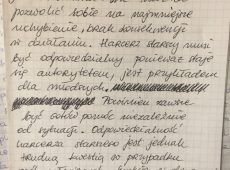 pozwolić sobie na najmniejsze
uchybienie, brak konsekwencji
w działaniu. Harcerz starszy musi
być odpowiedzialny ponieważ staje
się autorytetem, jest przykładem
dla młodszych,
Powinien zawsze
być gotów pomóc niezależnie
od sytuacji. Odpowiedzialność
harcerza starszego jest jednak
trudną kwestią bo przypadku